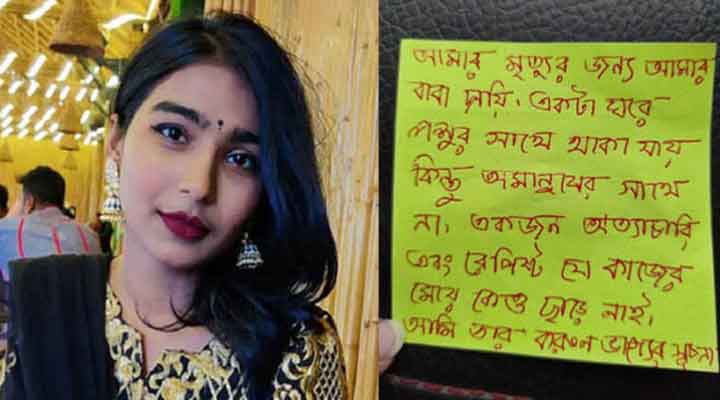 আমার মৃত্যুর জন্য আমার
বাবা দায়ি। একটা ঘরে
পশুর সাথে থাকা যায়
কিন্তু অমানুষের সাথে
না। একজন অত্যাচারি
এবং রেপিস্ট যে কাজের
মেয়ে কেও ছাড়ে নাই।
আমি তার করুণ ভাগ্যের সূচনা